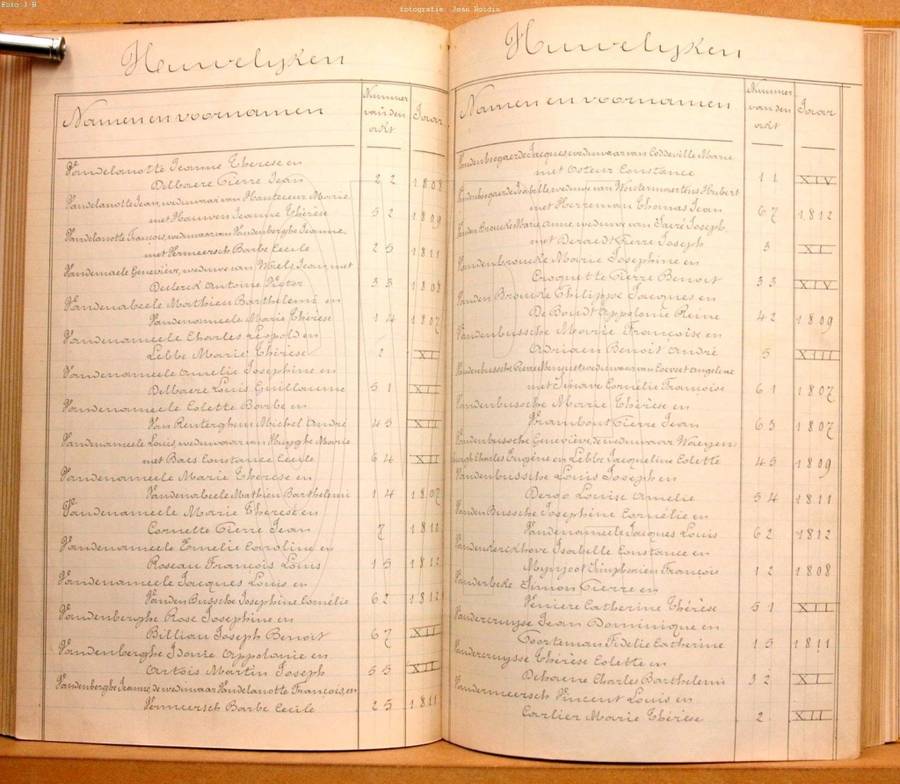 Foto J H
fotografie: Jean Roidin
Huwelyken
Namen en voornamen
Nummer van den acht
Jaar
Vandelanotte Jeanne Therese en
Delbaere Pierre Jean 22 1808
Vandelanotte Jean, weduwaar van Hautecoeur Marie
met Hauwen Jeanne Thérèse 52 1809
Vandelanotte François, weduwaar van Vandenberghe Jeanne
met Vermeersch Barbe Cecile 25 1811
Vandemaele Geneviève, weduwe van Waels Jean, met
Declerck Antoine Victor 33 1808
Vandenabeele Mathieu Barthelemi en
Vandenameele Marie Thérèse 14 1807
Vandenameele Charles Léopold en
Lebbe Marie Thérèse 2 XI
Vandenameele Amelie Josephine en
Delbaere Louis Guillaume 51 XII
Vandenameele Colette Barbe en
Van Renterghem Michel André 45 XII
Vandenameele Louis, weduwaar van Huyghe Marie
met Baes Constance Cecile 64 XII
Vandenameele Marie Therese en
Vandenabeele Mathieu Barthelemi 14 1807
Vandenameele Marie Therese en
Cornette Pierre Jean 7 1810
Vandenameele Emelie Caroline en
Roseau François Louis 15 1812
Vandenameele Jacques Louis en
Vanden Bussche Josephine Cornélie 62 1812
Vandenberghe Rose Josephine en
Billiau Joseph Benoit 67 XII
Vandenberghe Idonie Appolonie en
Artois Martin Joseph 55 XII
Vandenberghe Jeanne, de weduwaar Vandelanotte François, en
Vermeersch Barbe Cecile 25 1811
Huwelyken
Namen en voornamen
Nummer van den acht
Jaar
Vandenbogaerde Jacques weduwaar van Coddeville Marie
met Coteur Constance 11 XIV
Vandenbogaerde Isabelle, weduwe van Wintermaertens Hubert
met Herreman Thomas Jean 67 1812
Vanden Broucke Marie Anne, weduwe van Favré Joseph
met Deraedt Pierre Joseph 3 XI
Vandenbroucke Marie Josephine en
Croquette Pierre Benoit 33 XIV
Vanden Broucke Philippe Jacques en
De Boudt Appolonie Reine 42 1809
Vandenbussche Marie Françoise en
Adriaen Benoit André 5 XIII
met Cornélie Françoise 61 1807
Vandenbussche Marie Thérèse en
Pierre Jean 63 1807
Vandenbussche Geneviève, de weduwaar
Charles Eugène en Lebbe Jacqueline Colette 45 1809
Vandenbussche Louis Joseph en
Louise Amelie 54 1811
Vanden Bussche Josephine Cornélie en
Vandenameele Jacques Louis 62 1812
Vandenkerckhove Isabelle Constance en
François 12 1808
Vanderbeke Simon Pierre en
Catherine Thérèse 51 XII
Vandercruysse Jean Dominique en
Fidelie Catherine 15 1811
Vandercruysse Thérèse Colette en
Dehaene Charles Barthelemi 32 XI
Vandermeersch Vincent Louis en
Carlier Marie Thérèse 2 XII